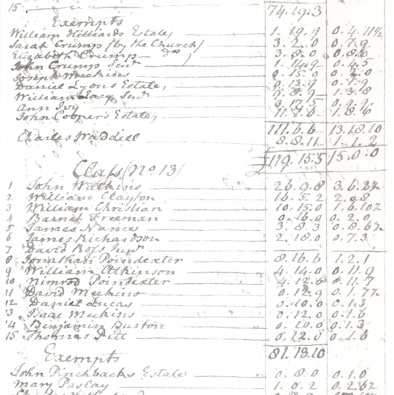 15 74.19.3
Exempts
William Hilliards Estate, 1.19.9 0.4.11½
Sarah Crump (by the Church) 3.2.0 0.7.9
Elizabeth Crump Do 3.8.0 0.8.6
John Crump Senr 1.14.9 0.4.5
Joseph Meekins 0.15.0 0.2.0
Daniel Lyons Estate, 0.13.9
William Lacy Senr 1.3.8
Ann Ivy 0.17.5
John Cooper's Estate, 11.7.6 1.8.6
111.6.6 13.18.10
Charles Waddill 8.8.11 1.1.2
£119.15.5 15.0.0
Class (No 13)
1 John Watkins 26.9.8 3.6.2½
2 William Clayton 16.5.2 2.0.8
3 William Christian 10.15.0 1.6.10½
4 Barnet Freeman 0.16.0 0.2.0
5 James Nance 3.8.3 0.8.6½
6 James Richardson 2.18.0 0.7.3
7 David Ross Junr
8 Jonathan Poindexter 8.16.6 1.2.1
9 William Atkinson 4.14.0 0.11.9
10 Nimrod Poindexter 4.12.6 0.11.7
11 David Meekins 0.12.9 0.1.7½
12 Daniel Lucas 0.10.0 0.1.3
13 Isaac Meekins 0.12.0 0.1.6
14 Benjamin Buxton 0.10.0 0.1.3
15 Thomas Pitt 0.12.0 0.1.6
81.18.10
Exempts
John Pinchbacks Estate 0.8.0 0.1.0
Mary Pasley 1.0.2 0.2.6½